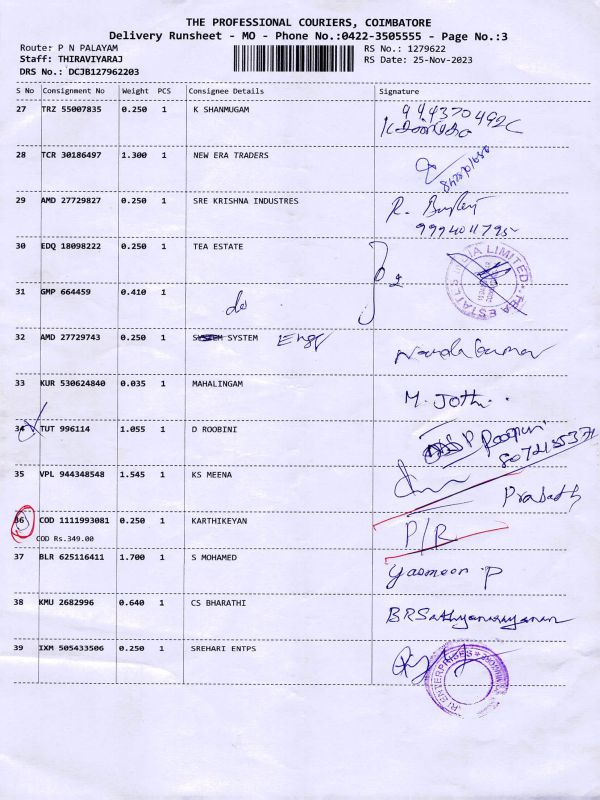 THE PROFESSIONAL COURIERS, COIMBATORE
Delivery Runsheet - MO - Phone No.:0422-3505555 - Page No.:3
Route: P N PALAYAM RS No.: 1279622
Staff: THIRAVIYARAJ RS Date: 25-Nov-2023
DRS No.: DCJB127962203
S No Consignment No Weight PCS Consignee Details Signature
27 TRZ 55007835 0.250 1 K SHANMUGAM
28 TCR 30186497 1.300 1 NEW ERA TRADERS
29 AMD 27729827 0.250 1 SRE KRISHNA INDUSTRES R.
9994011795
30 EDQ 18098222 0.250 1 TEA ESTATE
TEA ESTATES INDIA LIMITED
31 GMP 664459 0.410 1 do
32 AMD 27729743 0.250 1 SYSTEM SYSTEM Engg Nandakumar
33 KUR 530624840 0.035 1 MAHALINGAM M. Jothi
34 TUT 996114 1.055 1 D ROOBINI
35 VPL 944348548 1.545 1 KS MEENA Prabath
36 COD 1111993081 0.250 1 KARTHIKEYAN P/R
COD Rs.349.00
37 BLR 625116411 1.700 1 S MOHAMED Yasmeen P
38 KMU 2682996 0.640 1 CS BHARATHI BRSathyanarayanan
39 IXM 505433506 0.250 1 SREHARI ENTPS
RI ENTERPRISES